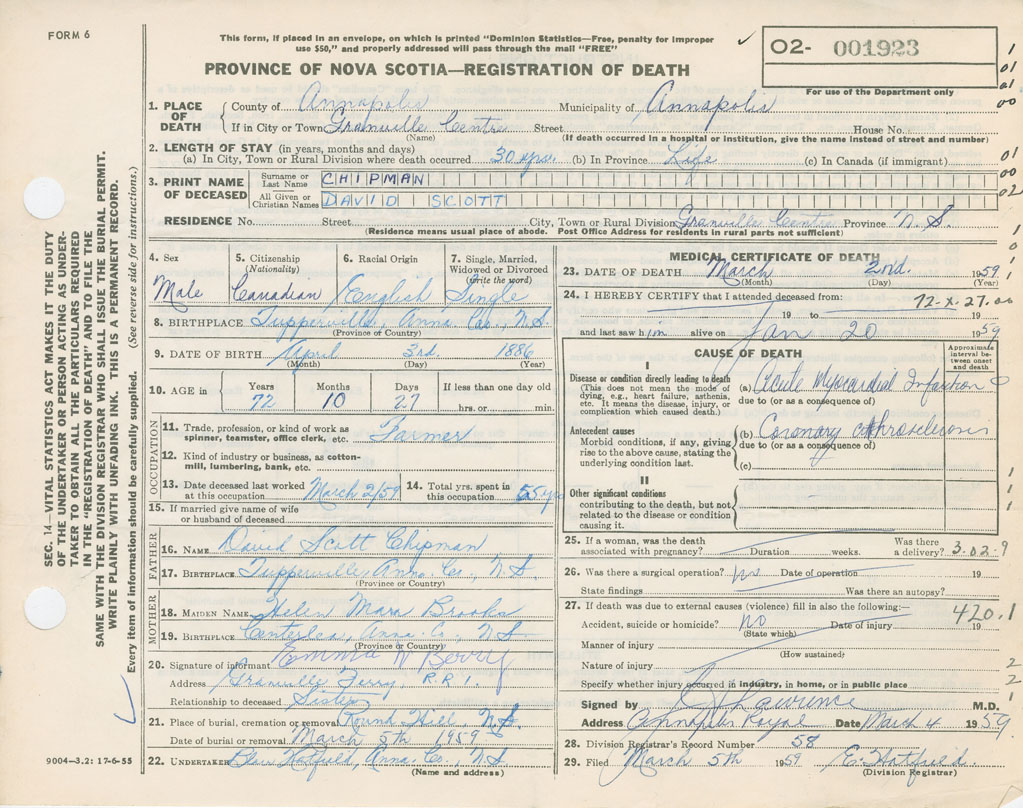 FORM 6
This form, if placed in an envelope, on which is printed "Dominion Statistics—Free, penalty for improper
use $50," and properly addressed will pass through the mail "FREE"
PROVINCE OF NOVA SCOTIA—REGISTRATION OF DEATH
O2- 001923
For use of the Department only
SEC. 14—VITAL STATISTICS ACT MAKES IT THE DUTY
OF THE UNDERTAKER OR PERSON ACTING AS UNDER-
TAKER TO OBTAIN ALL THE PARTICULARS REQUIRED
IN THE "REGISTRATION OF DEATH" AND TO FILE THE
SAME WITH THE DIVISION REGISTRAR WHO SHALL ISSUE THE BURIAL PERMIT.
WRITE PLAINLY WITH UNFADING INK. THIS IS A PERMANENT RECORD.
Every item of information should be carefully supplied. (See reverse side for instructions.)
1. PLACE OF DEATH County of Annapolis Municipality of Annapolis
If in City or Town Granville Centre Street House No.
(Name) (If death occurred in a hospital or institution, give the name instead of street and number)
2. LENGTH OF STAY (in years, months and days)
(a) In City, Town or Rural Division where death occurred 30 yrs. (b) In Province Life (c) In Canada (if immigrant)
3. PRINT NAME OF DECEASED Surname or Last Name CHIPMAN
All Given or Christian Names DAVID SCOTT
RESIDENCE No. Street City, Town or Rural Division Granville Centre Province N.S.
(Residence means usual place of abode. Post Office Address for residents in rural parts not sufficient)
4. Sex 5. Citizenship (Nationality) 6. Racial Origin 7. Single, Married, Widowed or Divorced (write the word)
Male Canadian English Single
8. BIRTHPLACE Tupperville, Anna Co., N.S.
(Province or Country)
9. DATE OF BIRTH April 3rd. 1886
(Month) (Day) (Year)
10. AGE in Years Months Days If less than one day old
72 10 27 hrs. or min.
OCCUPATION
11. Trade, profession, or kind of work as spinner, teamster, office clerk, etc. Farmer
12. Kind of industry or business, as cotton-mill, lumbering, bank, etc.
13. Date deceased last worked at this occupation March 2/59 14. Total yrs. spent in this occupation 55 yrs
15. If married give name of wife or husband of deceased
FATHER
16. NAME David Scott Chipman
17. BIRTHPLACE Tupperville, Anna. Co., N.S.
(Province or Country)
MOTHER
18. MAIDEN NAME Helen Mara Brooks
19. BIRTHPLACE Centerlea, Anna. Co., N.S.
(Province or Country)
20. Signature of informant Emma W Berry
Address Granville Ferry, R.R.1.
Relationship to deceased Sister
21. Place of burial, cremation or removal Round Hill, N.S.
Date of burial or removal March 5th 1959
22. UNDERTAKER Blair Hatfield, Anna. Co., N.S.
(Name and address)
9004—3.2: 17-6-55
MEDICAL CERTIFICATE OF DEATH
23. DATE OF DEATH March 2nd. 1959
(Month) (Day) (Year)
24. I HEREBY CERTIFY that I attended deceased from: 72-X-27.00
19 to 19
and last saw him alive on Jan 20 1959
CAUSE OF DEATH
Approximate interval between onset and death
I
Disease or condition directly leading to death
(This does not mean the mode of dying, e.g., heart failure, asthenia, etc. It means the disease, injury, or complication which caused death.)
(a) Acute Myocardial Infarction
due to (or as a consequence of)
Antecedent causes
Morbid conditions, if any, giving rise to the above cause, stating the underlying condition last.
(b) Coronary
due to (or as a consequence of)
(c)
II
Other significant conditions
contributing to the death, but not related to the disease or condition causing it.
25. If a woman, was the death associated with pregnancy? Duration weeks. Was there a delivery? 3.02.9
26. Was there a surgical operation? no Date of operation 19
State findings Was there an autopsy?
27. If death was due to external causes (violence) fill in also the following:— 420.1
Accident, suicide or homicide? no Date of injury 19
(State which)
Manner of injury
(How sustained)
Nature of injury
Specify whether injury occurred in industry, in home, or in public place
Signed by Lawrence M.D.
Address Annapolis Royal Date March 4 1959
28. Division Registrar's Record Number 58
29. Filed March 5th 1959 E. Hatfield
(Division Registrar)